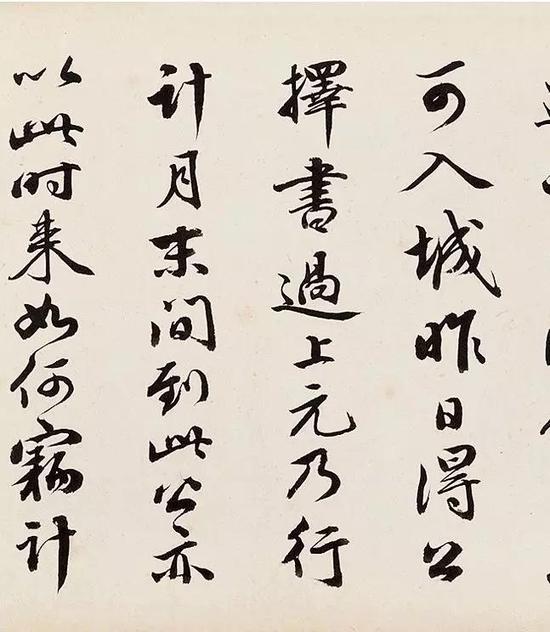 可入城昨日得公
擇書過上元乃行
計月末間到此公亦
以此時來如何竊計